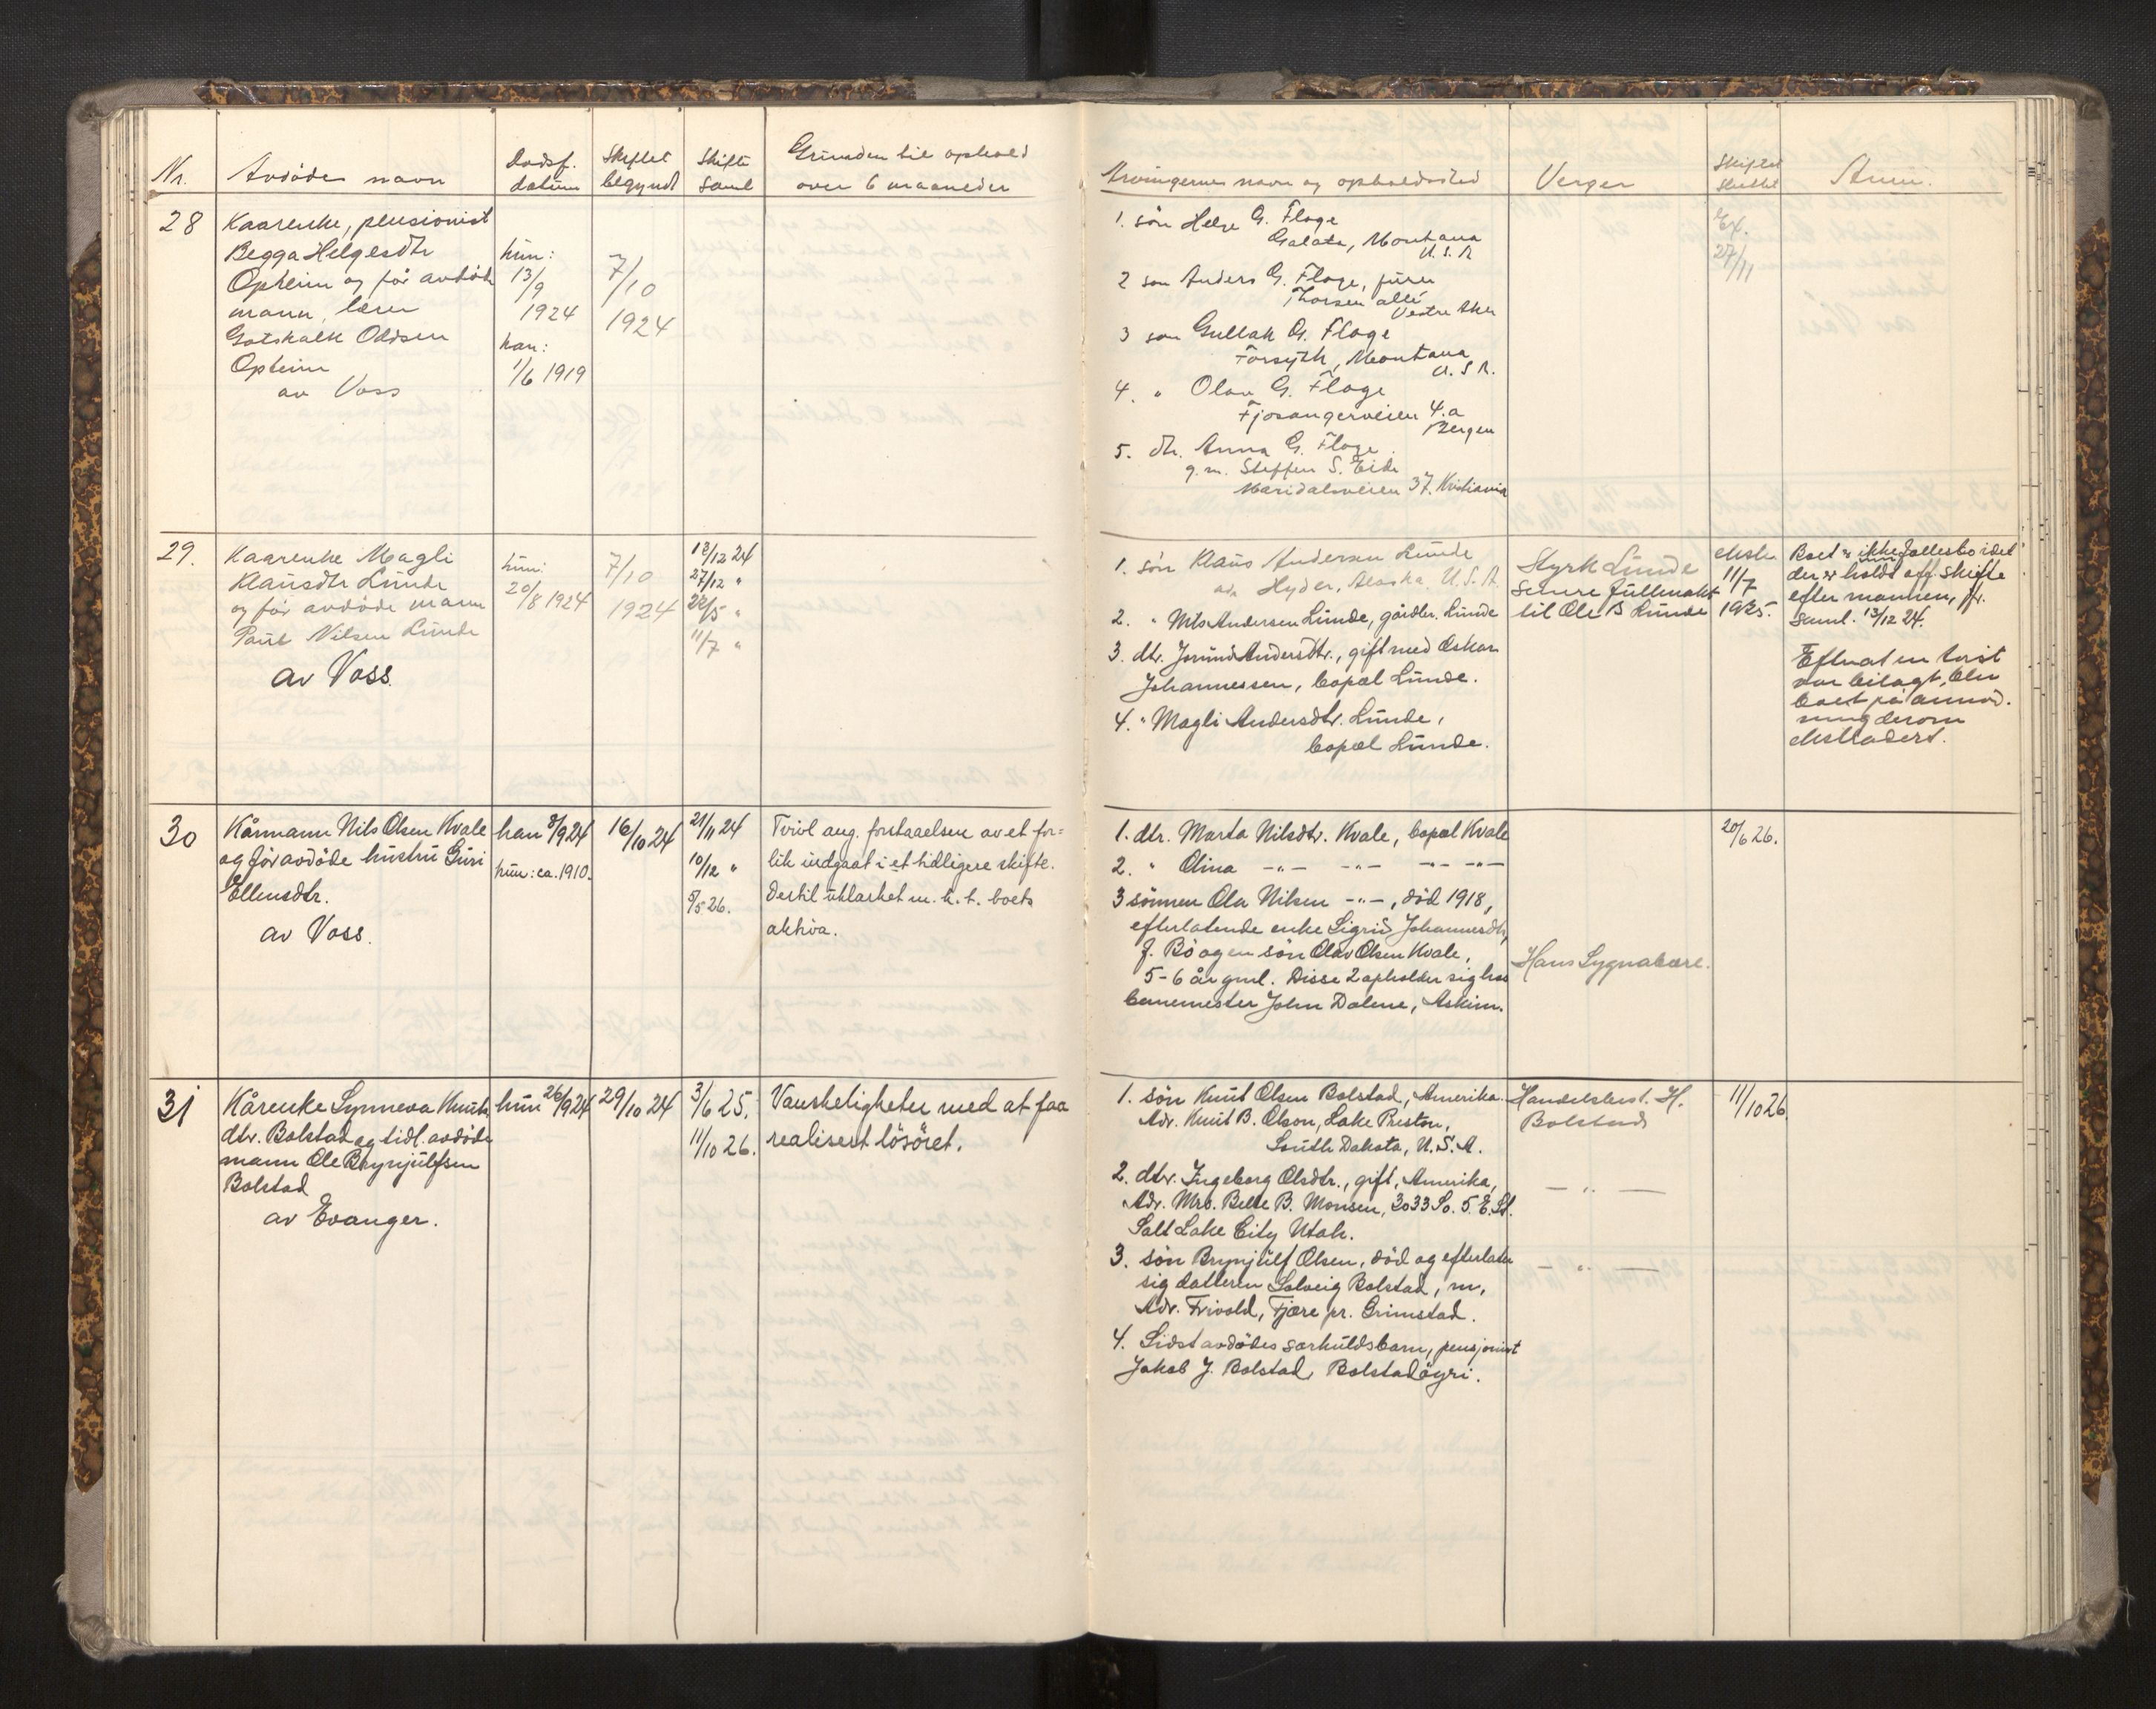 Nr.
Avdødes navn
Dødsf. datum
Skiftet begyndt
Skifte saml
Grunden til ophold
over 6 maaneder
Arvingernes navn og opholdssted
Verger
Skiftet sluttet
Anm.
28
Kaarenke, pensionist
Begga Helgesdtr
Opheim og før avdøde
mann, lærer
Gotskalk Oddsen
Opheim
av Voss
hun:
13/9
1924
han:
1/6 1919
7/10
1924
1. søn Helge G. Fløge
Galata, Montana
U.S.A
2 søn Anders G. Fløge,
Thorsen allé
Vestre Aker
3 søn Gullak G. Fløge
Forsyth, Montana
U.S.A.
4. " Olav G. Fløge
Fjosangerveien 4.a
Bergen
5. dtr. Anna G. Fløge
g.m. Steffen S. Eide
Maridalsveien 37. Kristiania
Ex.
27/11
29.
Kaarenke Magli
Klausdtr Lunde
og før avdøde mann
Paul Nilsen Lunde
av Voss.
hun:
20/8 1924
7/10
1924
12/12 24
27/12 "
28/5 "
11/7 "
1. søn Klaus Andersen Lunde
adr. Hyder, Alaska. U.S.A
2. " Nils Andersen Lunde, gårdbr. Lunde
3. dtr. Jorund Andersdtr., gift med Oskar
Johannessen, bopæl Lunde.
4. " Magli Andersdtr. Lunde,
bopæl Lunde.
Styrk Lunde
senere fullmakt
til Ole B Lunde
ekstr
11/7
1925.
Boet er ikke fællesbo idet
der er holdt off. skifte
efter mannen, jfr.
saml. 13/12 24.
Efterat en tvist
var bilagt, blev
boet på anmod-
ning derom
ekstradert.
30
Kårmann Nils Olsen Kvale
og før avdøde hustru Guri
Ellensdtr.
av Voss.
han 8/9 24
hun: ca. 1910.
16/10 24
21/11 24
10/12 "
5/5 26.
Tvivl ang. forstaaelsen av et for=
lik indgaat i et tidligere skifte.
Dertil uklarhet m.h.t. boets
aktiva.
1. dtr. Marta Nilsdtr. Kvale, bopæl Kvale
2. " Olina -"- -"- -"- -"-
3 sønnen Ola Nilsen -"-, død 1918,
efterlatende enke Sigrid Johannesdtr,
f. Bö og en søn Olav Olsen Kvale,
5-6 år gml. Disse 2 opholder sig hos
banemester John Dalene, Askim.
Hans Lygnabære.
20/6 26.
31
Kårenke Synneva Knuts
dtr. Bolstad og tidl. avdøde
mann Ole Brynjulfsen
Bolstad
av Evanger.
hun 26/9 24
29/10 24
3/6 25.
11/10 26.
Vanskeligheter med at faa
realisert løsøret.
1. søn Knut Olsen Bolstad, Amerika.
Adr. Knut B. Olson, Lake Preston,
South Dakota, U.S.A.
2. dtr. Ingeborg Olsdtr., gift, Amerika,
Adr. Mrs. Belle B. Monsen, 2033 So. 5. E. St.
Salt Lake City Utah.
3. søn Brynjulf Olsen, død og efterlater
sig datteren Solveig Bolstad, m,
Adr. Frivold, Fjære pr. Grimstad.
4. Sidst avdødes særkuldsbarn, pensjonist
Jakob J. Bolstad, Bolstadöyri.
Handelsbest. H.
Bolstad
— " —
— " —
11/10 26